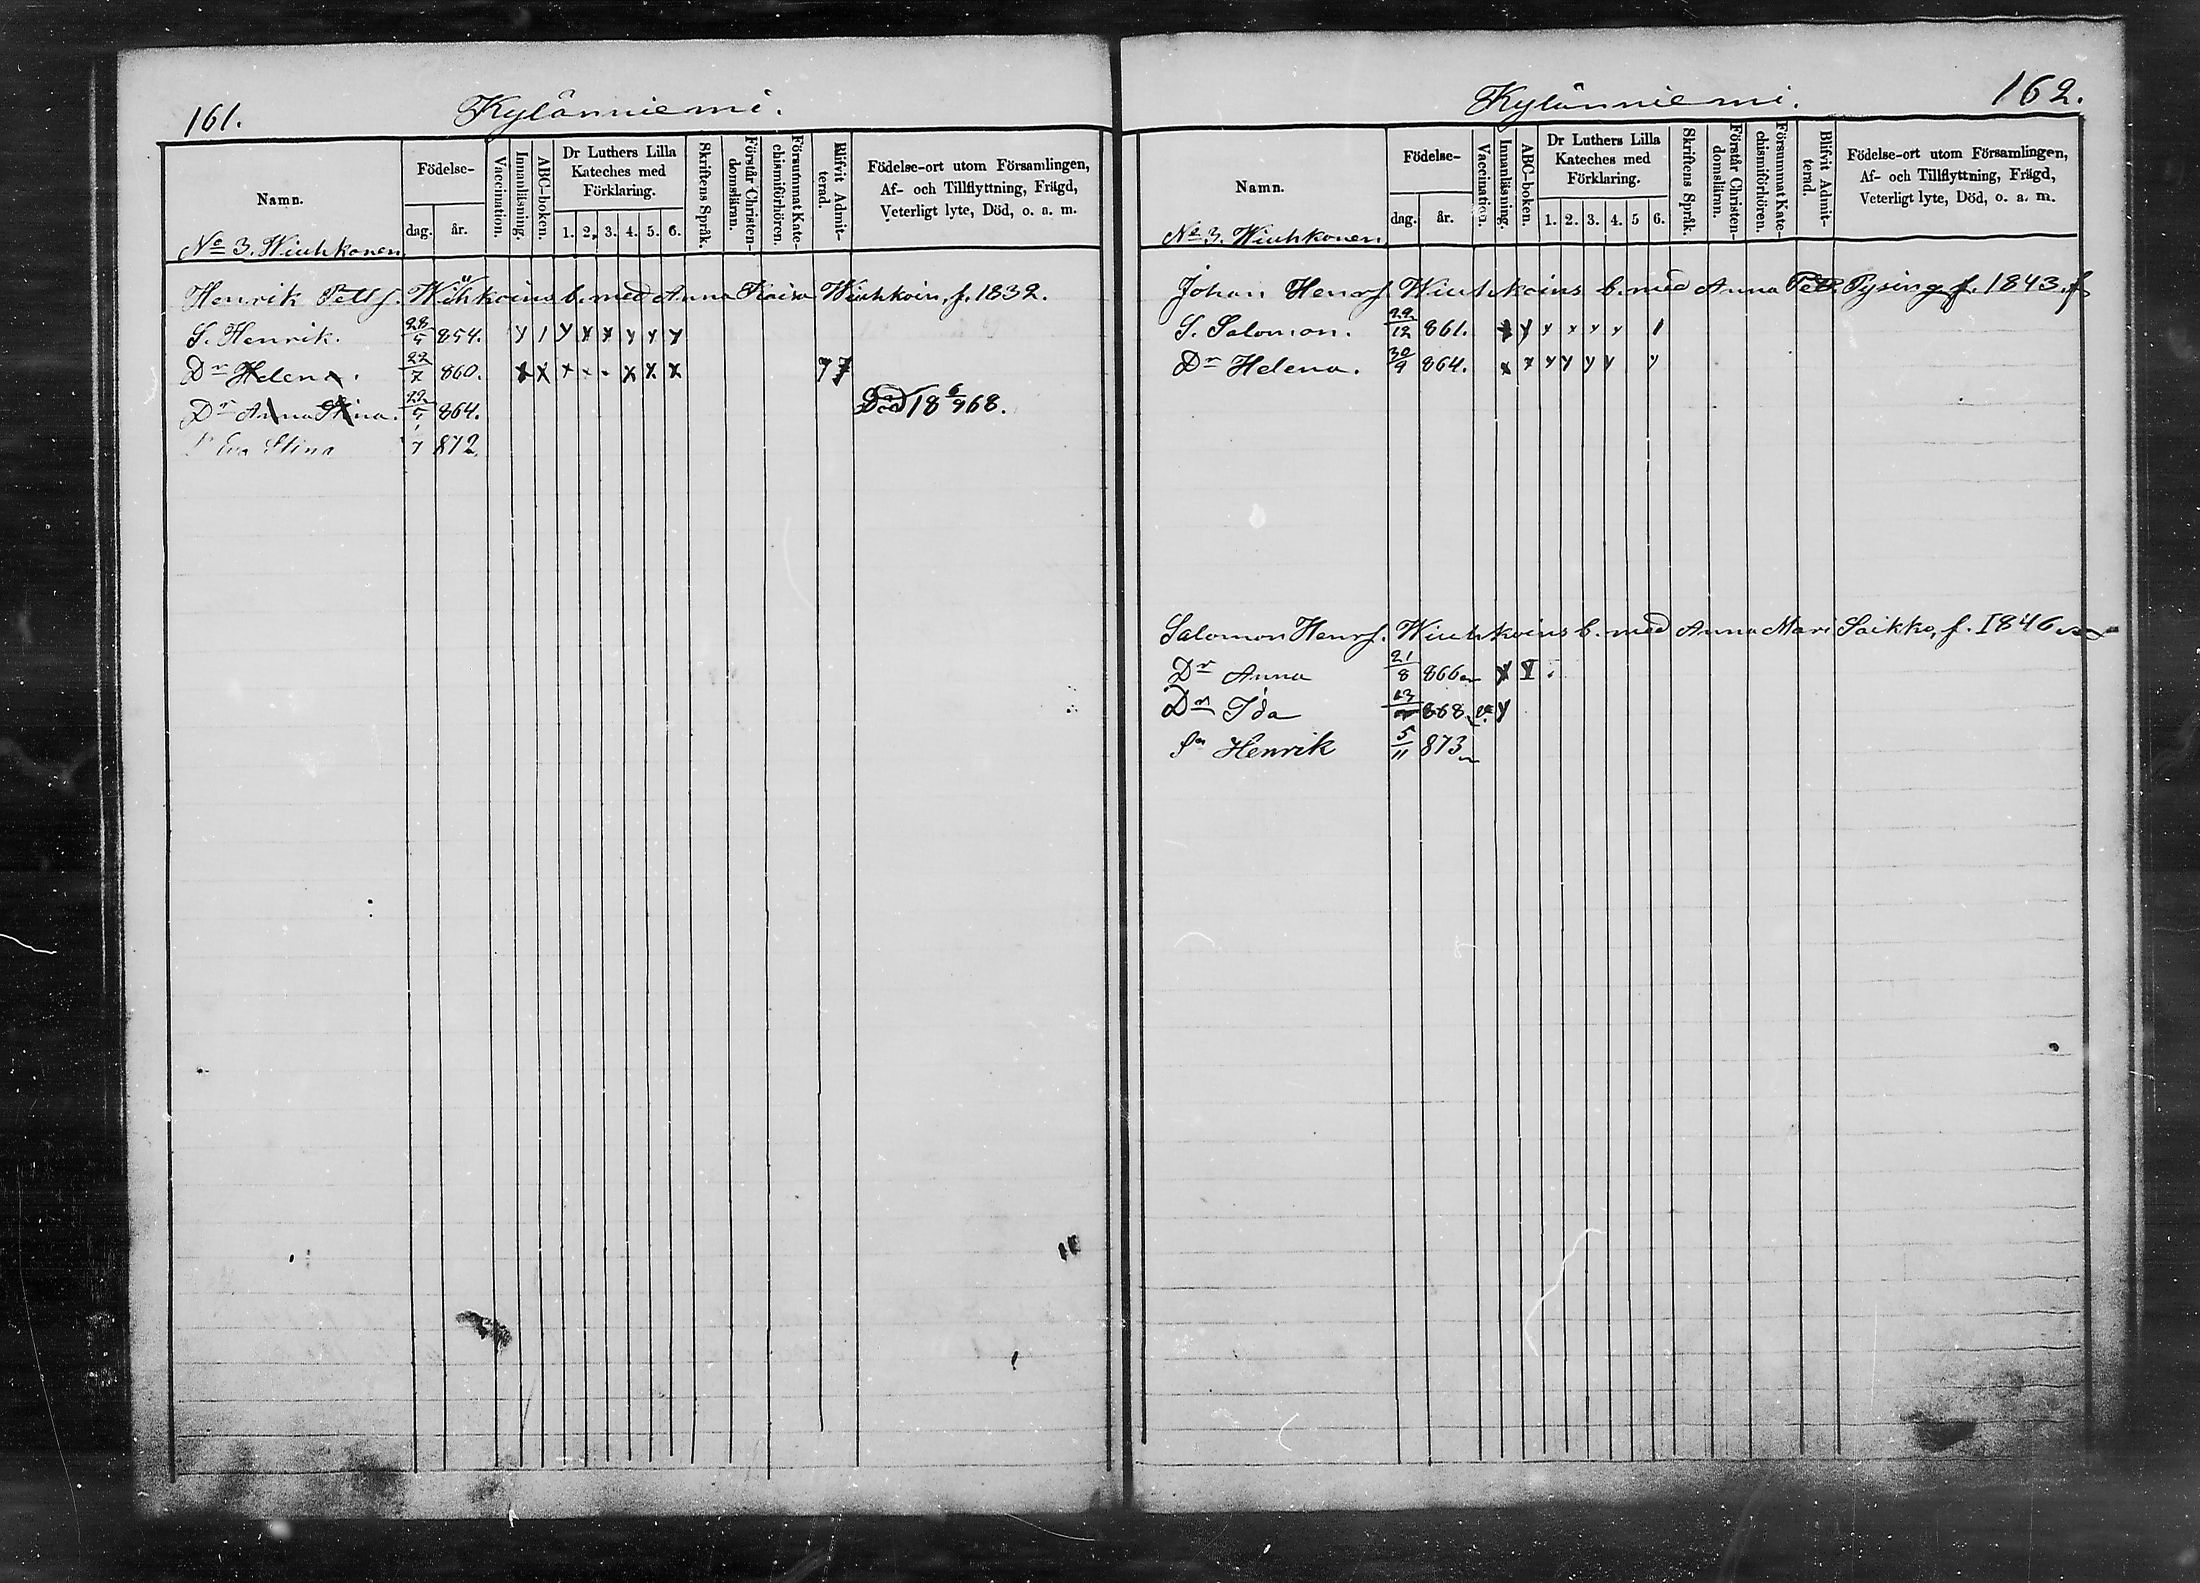 161.
Kylänniemi.
Namn.
Födelse-
dag. år.
Vaccination.
Innanläsning.
ABC-boken.
Dr Luthers Lilla Kateches med Förklaring.
1. 2. 3. 4. 5. 6.
Skriftens Språk.
Förstår Christendomsläran.
Försummat Katechismiförhören.
Blifvit Admitterad.
Födelse-ort utom Församlingen,
Af- och Tillflyttning, Frägd,
Veterligt lyte, Död, o. a. m.
No 3. Wiuhkonen
Henrik Petts. Wiihkoins b. med Anna Kaisa Wiuhkoin, f. 1832.
S. Henrik. 28/5 854.
Dr Helena. 22/7 860. 77
Dr Anna Stina. 22/5 864. Död 18 6/9 68.
Dr Eva Stina 1/7 872
162.
Kylänniemi.
Namn.
Födelse-
dag. år.
Vaccination.
Innanläsning.
ABC-boken.
Dr Luthers Lilla Kateches med Förklaring.
1. 2. 3. 4. 5 6.
Skriftens Språk.
Förstår Christendomsläran.
Försummat Katechismiförhören.
Blifvit Admitterad.
Födelse-ort utom Församlingen,
Af- och Tillflyttning, Frägd,
Veterligt lyte, Död, o. a. m.
No 3. Wiuhkonen
Johan Henrs. Wiuhkoins b. med Anna Pett. Pysing f. 1843.
S. Salomon. 22/12 861.
Dr Helena. 30/9 864.
Salomon Henrs. Wiuhkoins b. med Anna Mari Saikko, f. 1846
Dr Anna 21/8 866
Dr Ida 13 868
Sn Henrik 5/11 873